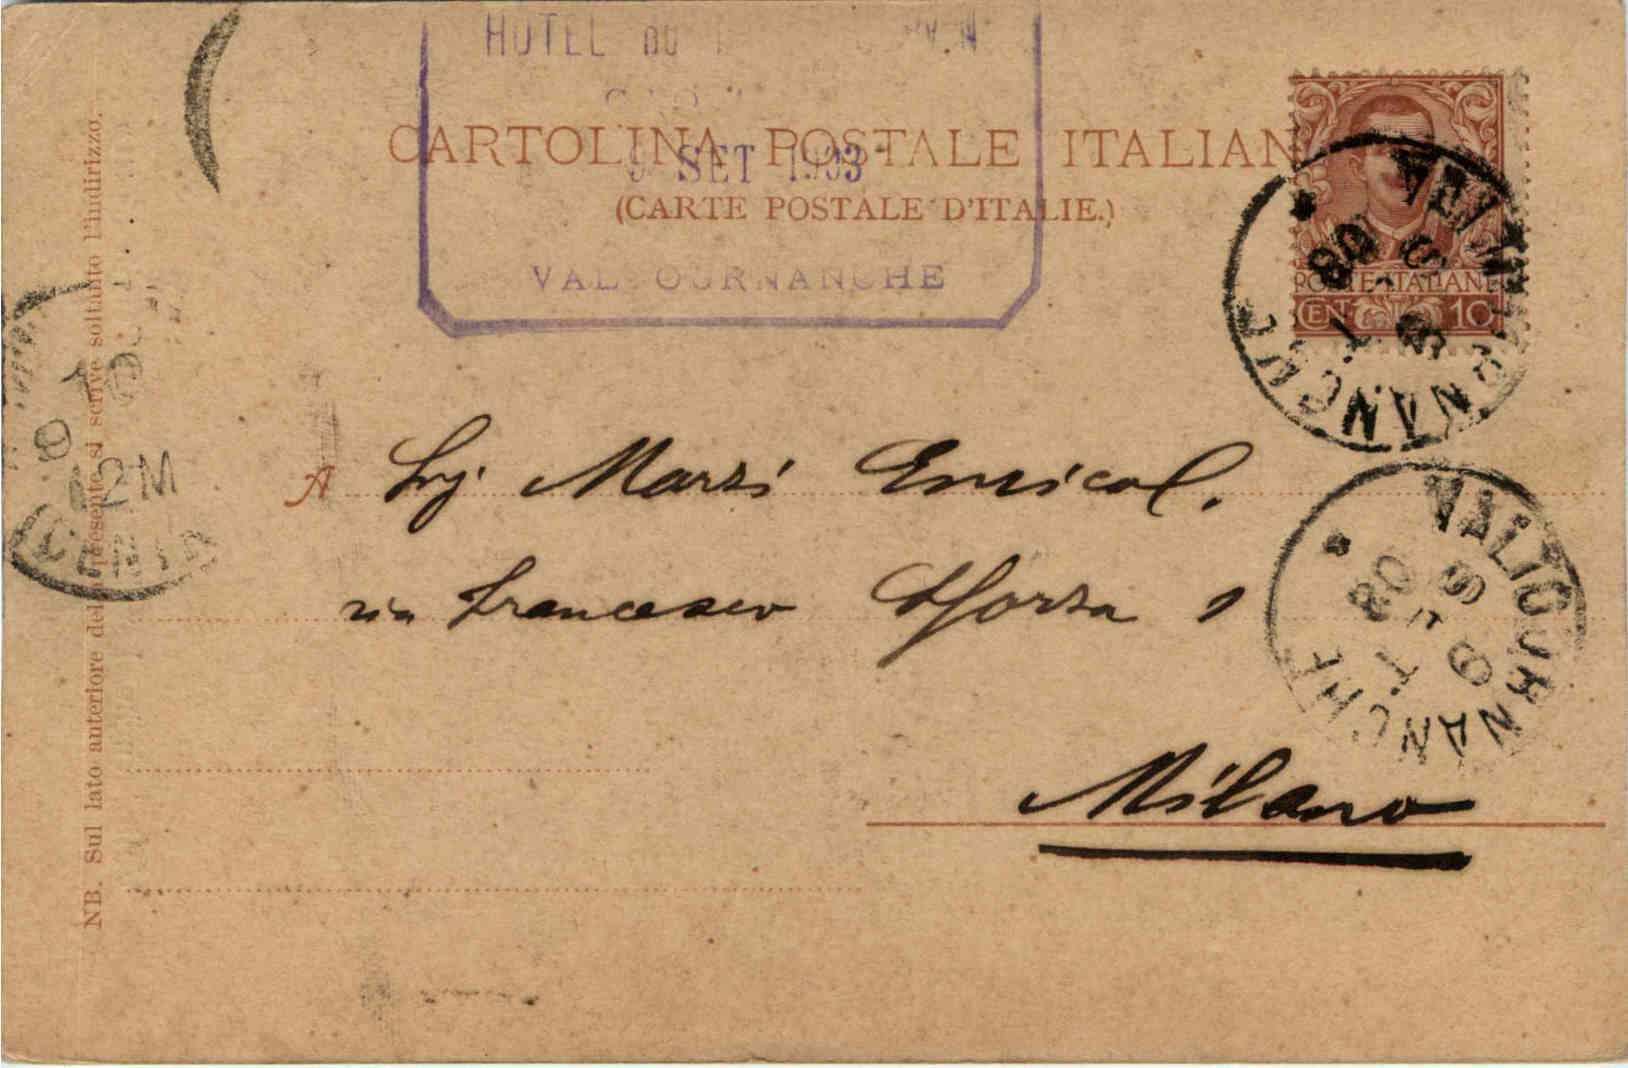 HOTEL
CARTOLINA POSTALE ITALIAN
9 SET 1903
(CARTE POSTALE D'ITALIE.)
VAL TOURNANCHE
POSTE ITALIANE
CENT. 10
VALTOURNANCHE
9 SET 03
VALTOURNANCHE
9 SET 03
12 M
NB. Sul lato anteriore della presente si scrive soltanto l'indirizzo.
A Sig. Marzi
via Francesco Sforza 1
Milano